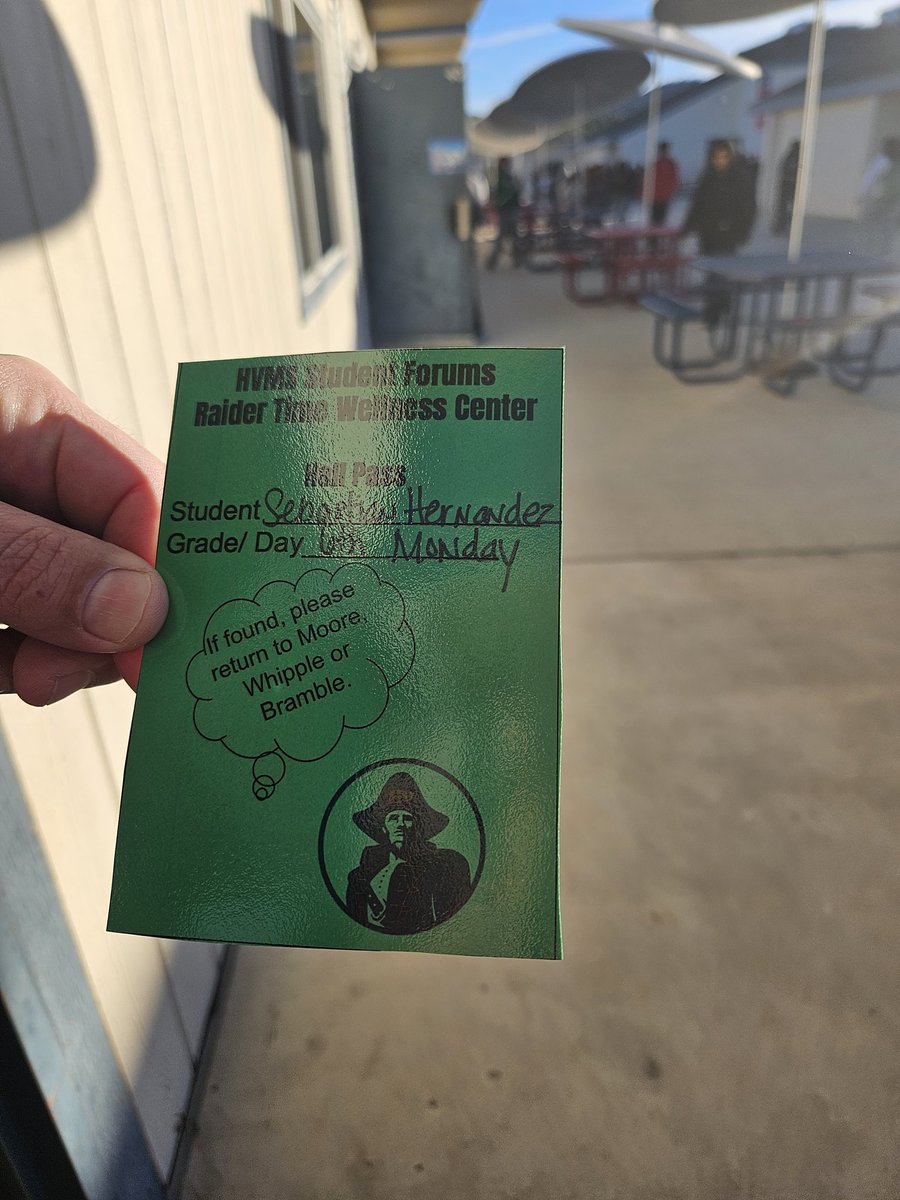 HVMS Student Forums
Raider Time Wellness Center
Hall Pass
Student Sebastian Hernandez
Grade/ Day 6th Monday
If found, please
return to Moore,
Whipple or
Bramble.